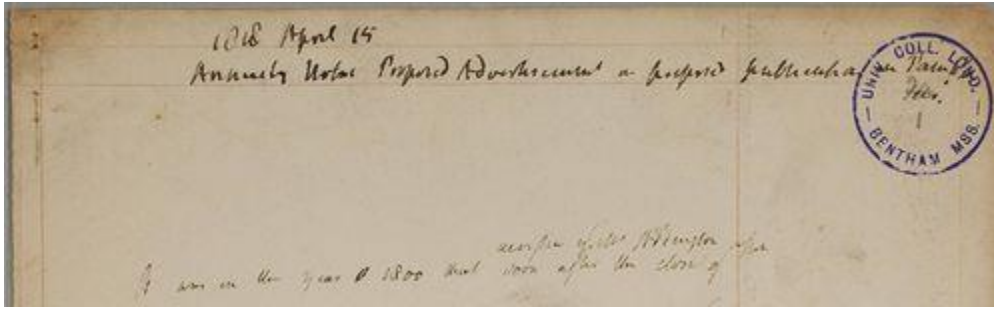 1818 April 15
Annuity Notes Proposed Advertisement on proposed publication
UNIV. COLL. LOND.
BENTHAM MSS.
1
after
It was in the year 1800 that soon after the close of